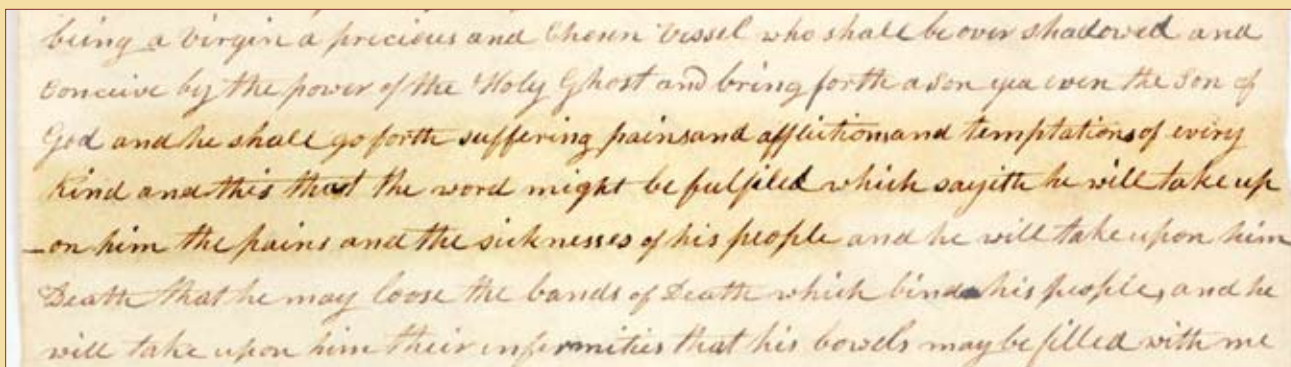 being a virgin a precious and Chosen vessel who shall be over shadowed and
Conceive by the power of the Holy Ghost and bring forth a Son yea even the Son of
God and he shall go forth suffering pains and afflictions and temptations of every
Kind and this that the word might be fulfiled which sayith he will take up
-on him the pains and the sicknesses of his people and he will take upon him
Death that he may loose the bands of Death which binds his people, and he
will take upon him their infirmities that his bowels may be filled with me